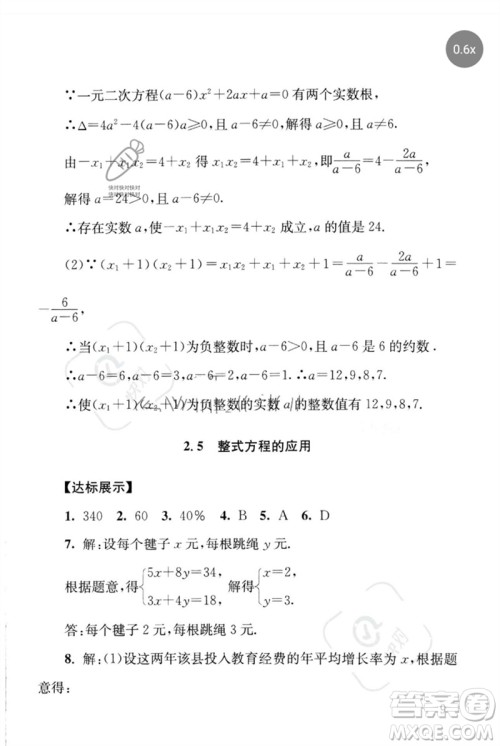 0.6x
∵一元二次方程(a-6)x²+2ax+a=0有两个实数根,
∴Δ=4a²-4(a-6)a≥0,且a-6≠0,解得a≥0,且a≠6.
由-x₁+x₁x₂=4+x₂得x₁x₂=4+x₁+x₂,即a/(a-6)=4-2a/(a-6),
解得a=24>0,且a-6≠0.
快对快对核对
快对快对核对
∴存在实数a,使-x₁+x₁x₂=4+x₂成立,a的值是24.
(2)∵(x₁+1)(x₂+1)=x₁+x₂+x₁x₂+1=-2a/(a-6)+a/(a-6)+1=
-6/(a-6),
∴当(x₁+1)(x₂+1)为负整数时,a-6>0,且a-6是6的约数.
∴a-6=6,a-6=3,a-6=2,a-6=1.
∴a=12,9,8,7.
∴使(x₁+1)(x₂+1)为负整数的实数a的整数值有12,9,8,7.
2.5 整式方程的应用
【达标展示】
1. 340 2. 60 3. 40% 4. B 5. A 6. D
7. 解:设每个毽子x元,每根跳绳y元.
根据题意,得{5x+8y=34, 3x+4y=18. 解得{x=2, y=3.
答:每个毽子2元,每根跳绳3元.
8. 解:(1)设这两年该县投入教育经费的年平均增长率为x,根据题
意得:
9
答案圈
MXQE.COM